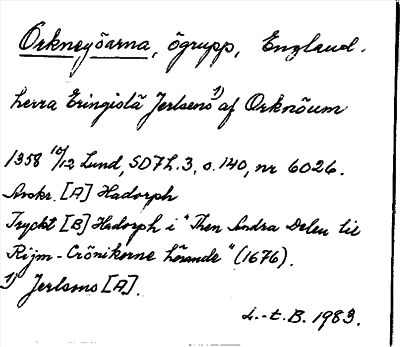 Orkneyöarna, ögrupp, England.
herra Eringislä Jerlsens 1) af Orknöum
1358 10/12 Lund, SD7h.3, s. 140, nr 6026.
Avskr. [A] Hadorph
Tryckt [B] Hadorph i "Then Andra Delen til
Rijm-Crönikerne hörande" (1676).
1) Jerlsons [A].
L.-t. B. 1983.